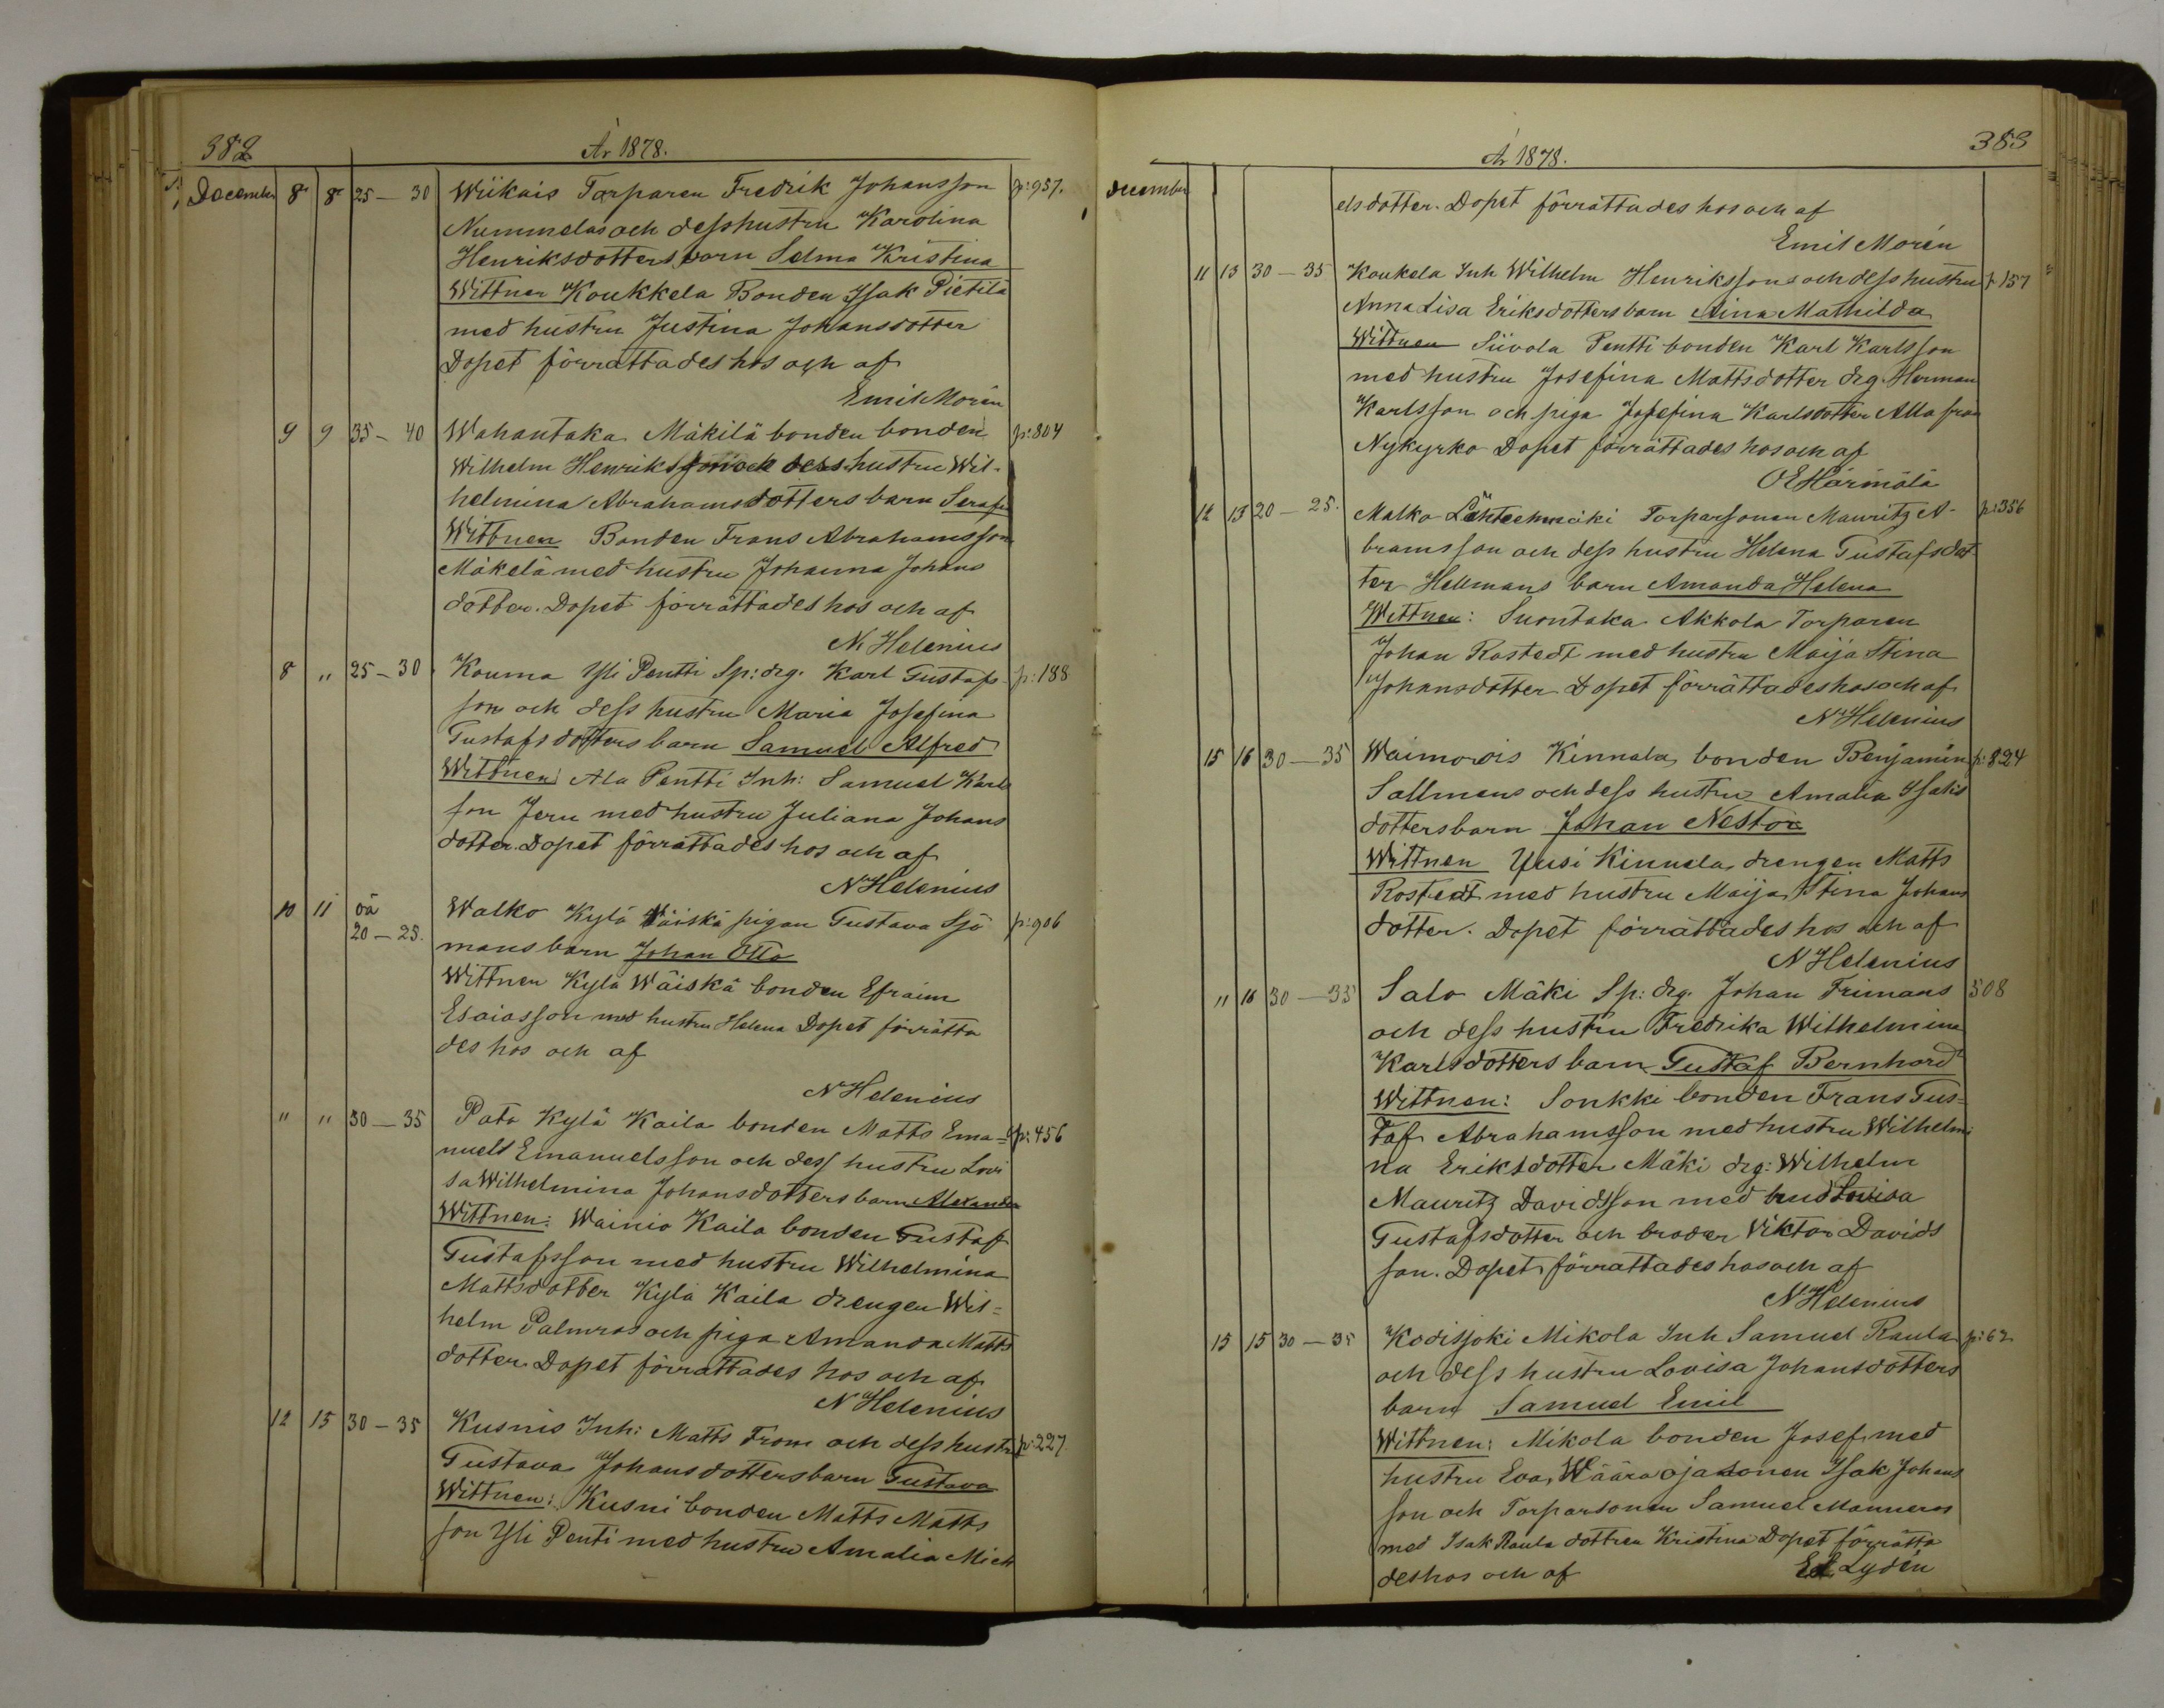 382
År 1878.
December 8 8 25 — 30 Wiikais Torparen Fredrik Johansson p: 957.
Nummelas och dess hustru Karolina
Henriksdotters barn Selma Kristina
Wittnen Koukkela Bonden Isak Pietilä
med hustru Justina Johansdotter
Dopet förrättades hos och af
Emil Morén
9 9 35 — 40 Wahantaka Mäkilä bonden bonden p: 804
Wilhelm Henriksson och dess hustru Wil-
helmina Abrahamsdotters barn Serafi
Wittnen Bonden Frans Abrahamsson
Mäkelä med hustru Johanna Johans
dotter. Dopet förrättades hos och af
N Helenius
8 " 25 — 30 Kouma Yli Pentti Sp: drg. Karl Gustafs- p: 188
son och dess hustru Maria Josefina
Gustafsdotters barn Samuel Alfred
Wittnen Ala Pentti Inh: Samuel Karls
son Jern med hustru Juliana Johans
dotter. Dopet förrättades hos och af
N Helenius
10 11 oä 20 — 25. Walko Kylä Wäiskä pigan Gustava Sjö p: 906
mans barn Johan Otto
Wittnen Kylä Wäiskä bonden Efraim
Esaiasson med hustru Helena Dopet förrätta
des hos och af
N Helenius
" " 30 — 35 Pato Kylä Kaila bonden Matts Ema= p: 456
nuels Emanuelsson och dess hustru Lovi
sa Wilhelmina Johansdotters barn Alexander
Wittnen: Wainio Kaila bonden Gustaf
Gustafsson med hustru Wilhelmina
Mattsdotter Kylä Kaila drengen Wil=
helm Palmros och piga Amanda Matts
dotter. Dopet förrättades hos och af
N Helenius
12 15 30 — 35 Kusnis Inh: Matts From och dess hustru p: 227.
Gustava Johansdotters barn Gustava
Wittnen: Kusni bonden Matts Matts
son Yli Penti med hustru Amalia Mich
383
År 1878.
december
elsdotter. Dopet förrättades hos och af
Emil Morén
11 13 30 — 35 Koukela Inh Wilhelm Henrikssons och dess hustru p 157
Anna Lisa Eriksdotters barn Aina Mathilda
Wittnen Siivola Pentti bonden Karl Karlsson
med hustru Josefina Mattsdotter drg. Herman
Karlsson och piga Josefina Karlsdotter Alla från
Nykyrko Dopet förrättades hos och af
OE Härmälä
12 13 20 — 25. Malko Lähteenmäki Torparsonen Mauritz A- p: 356
bramsson och dess hustru Helena Gustafsdot
ter Hellmans barn Amanda Helena
Wittnen: Suontaka Akkola Torparen
Johan Rostedt med hustru Maija Stina
Johansdotter Dopet förrättades hos och af
N Helenius
15 16 30 — 35 Waimorois Kinnala bonden Benjamin p: 824
Sallmens och dess hustru Amalia Isaks
dotters barn Johan Nestor
Wittnen Yusi Kinnala drengen Matts
Rostedt med hustru Maija Stina Johans
dotter. Dopet förrättades hos och af
N Helenius
" 16 30 — 35 Salo Mäki Sp: drg. Johan Frimans 508
och dess hustru Fredrika Wilhelmina
Karlsdotters barn Gustaf Bernhard
Wittnen: Sonkki bonden Frans Gus=
taf Abrahamsson med hustru Wilhelmi
na Eriksdotter Mäki drg: Wilhelm
Mauritz Davidsson med Lovisa
Gustafsdotter och broder Viktor Davids
son. Dopet förrättades hos och af
N Helenius
15 15 30 — 35 Kodisjoki Mikola Inh Samuel Raula p: 62
och dess hustru Lovisa Johansdotters
barn Samuel Emil
Wittnen: Mikola bonden Josef med
hustru Eva, Wääraoja sonen Isak Johans
son och Torparsonen Samuel Manneros
med Isak Raula dottren Kristina Dopet förrätta
des hos och af Ed Lydén